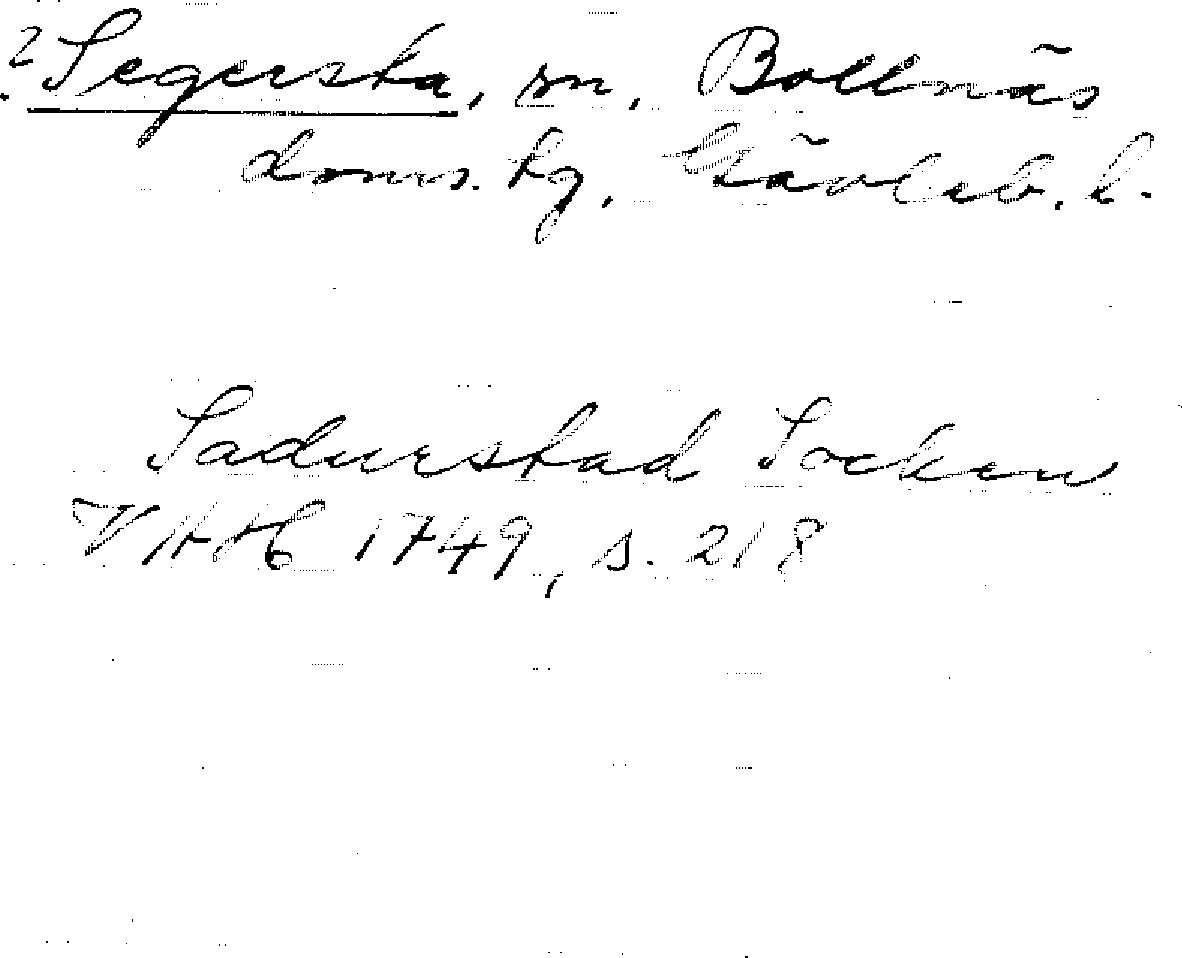 ? Segersta, sn, Bollnäs
doms. hg, Gävleb. l.
Sadurstad Socken
VHAH 1749, s. 218